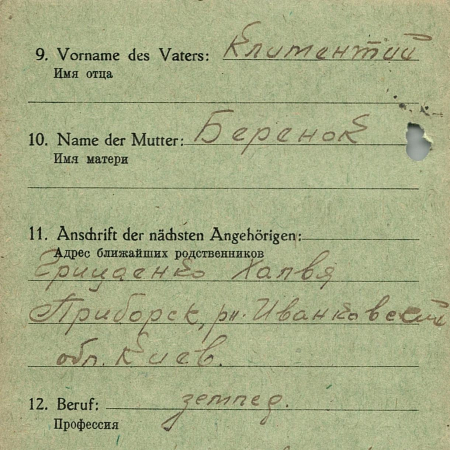 9. Vorname des Vaters: Климентий
Имя отца
10. Name der Mutter: Беренок
Имя матери
11. Anschrift der nächsten Angehörigen:
Адрес ближайших родственников
Гриценко
Приборск, рн. Иванковский
обл. Киев.
12. Beruf: землед.
Профессия